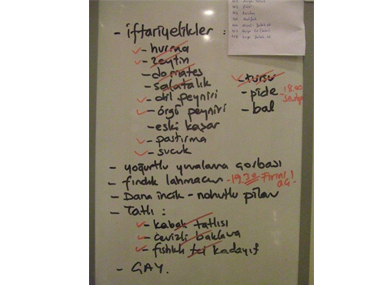 - iftariyelikler :
- hurma
- zeytin
- domates
- salatalık
- dil peyniri
- örgü peyniri
- eski kaşar
- pastırma
- sucuk
- turşu
- pide
- bal
- yoğurtlu yuvalama çorbası
- fındık lahmacun
- Dana incik - nohutlu pilav
- Tatlı :
- kabak tatlısı
- cevizli baklava
- fıstıklı tel kadayıf
- ÇAY.